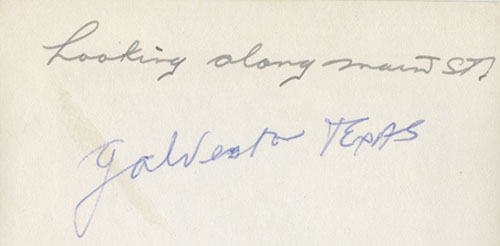 Looking along main ST.
Galveston TEXAS